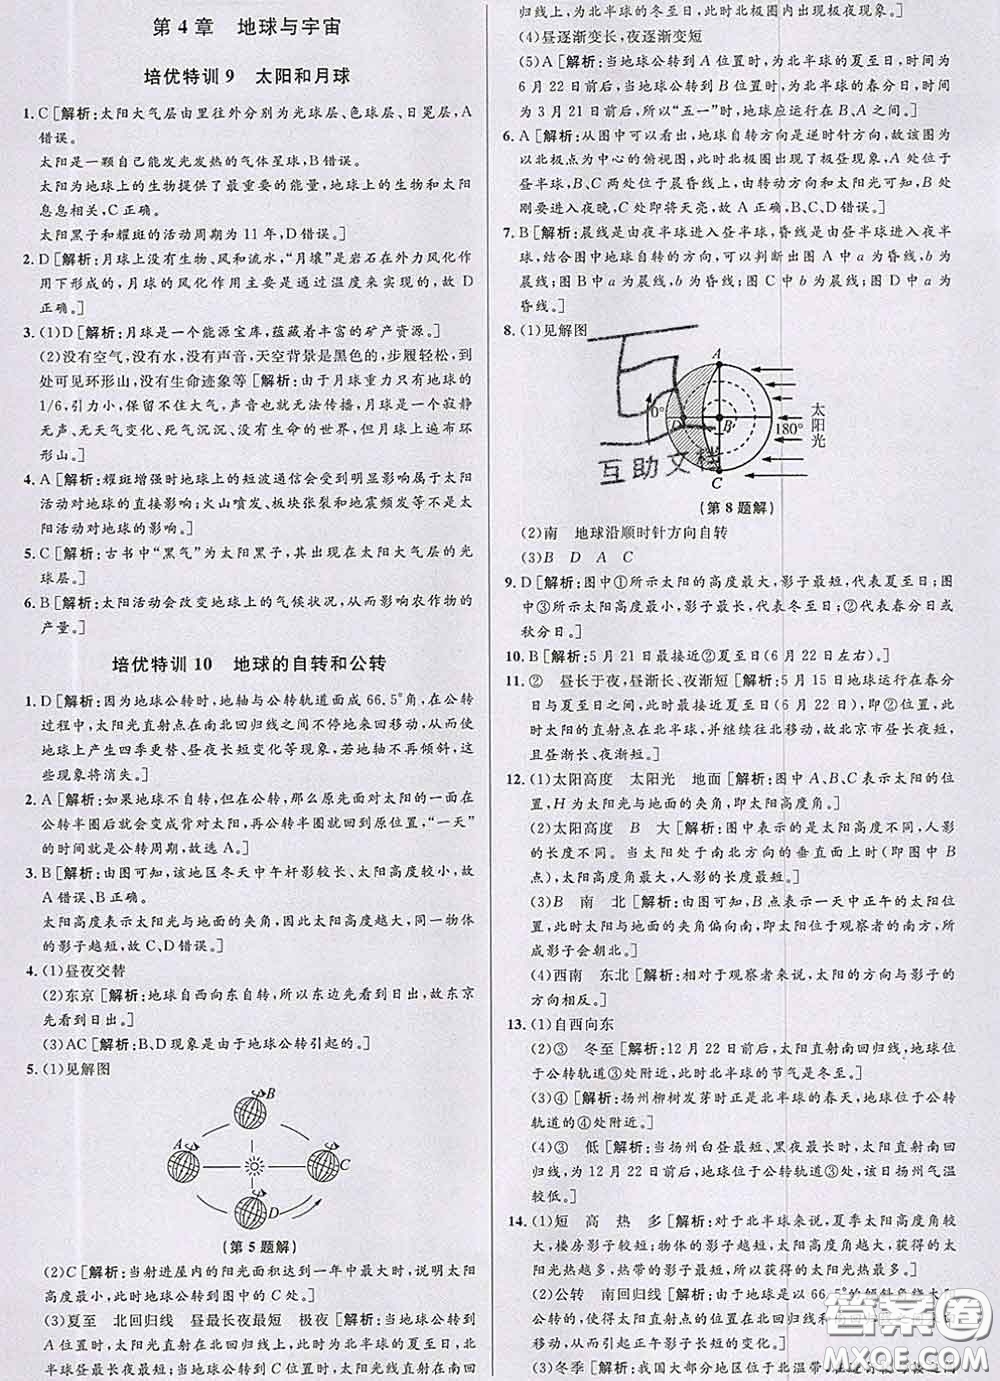 第4章 地球与宇宙
培优特训9 太阳和月球
1. C[解析:太阳大气层由里往外分别为光球层、色球层、日冕层,A
错误。
太阳是一颗自己能发光发热的气体星球,B错误。
太阳为地球上的生物提供了最重要的能量,地球上的生物和太阳
息息相关,C正确。
太阳黑子和耀斑的活动周期为11年,D错误。]
2. D[解析:月球上没有生物、风和流水,“月壤”是岩石在外力风化作
用下形成的,月球的风化作用主要是通过温度来实现的,故D
正确。]
3. (1)D[解析:月球是一个能源宝库,蕴藏着丰富的矿产资源。]
(2)没有空气,没有水,没有声音,天空背景是黑色的,步履轻松,到
处可见环形山,没有生命迹象等[解析:由于月球重力只有地球的
1/6,引力小,保留不住大气,声音也就无法传播,月球是一个寂静
无声、无天气变化、死气沉沉、没有生命的世界,但月球上遍布环
形山。]
4. A[解析:耀斑增强时地球上的短波通信会受到明显影响属于太
阳活动对地球的直接影响;火山喷发、板块张裂和地震频发等不是太
阳活动对地球的影响。]
5. C[解析:古书中“黑气”为太阳黑子,其出现在太阳大气层的光
球层。]
6. B[解析:太阳活动会改变地球上的气候状况,从而影响农作物的
产量。]
培优特训10 地球的自转和公转
1. D[解析:因为地球公转时,地轴与公转轨道面成66.5°角,在公转
过程中,太阳光直射点在南北回归线之间不停地来回移动,从而使
地球上产生四季更替、昼夜长短变化等现象,若地轴不再倾斜,这
些现象将消失。]
2. A[解析:如果地球不自转,但在公转,那么原先面对太阳的一面在
公转半圈后就会变成背对太阳,再公转半圈就回到原位置,“一天”
的时间就是公转周期,故选A。]
3. B[解析:由图可知,该地区冬天中午杆影较长、太阳高度较小,故
A错误,B正确。
太阳高度表示太阳光与地面的夹角,因此太阳高度越大,同一物体
的影子越短,故C、D错误。]
4. (1)昼夜交替
(2)东京[解析:地球自西向东自转,所以东边先看到日出,故东京
先看到日出。]
(3)AC[解析:B、D现象是由于地球公转引起的。]
5. (1)见解图
B
A
C
D
(第5题解)
(2)C[解析:当射进屋内的阳光面积达到一年中最大时,说明太阳
高度最小,此时地球公转到图中的C处。]
(3)夏至 北回归线 昼最长夜最短 极夜[解析:当地球公转到
A位置时,太阳直射在北回归线上,为北半球的夏至日,此时北半
球昼最长夜最短;当地球公转到C位置时,太阳直射在南回
归线上,为北半球的冬至日,此时北极圈内出现极夜现象。]
(4)昼逐渐变长,夜逐渐变短
(5)A[解析:当地球公转到A位置时,为北半球的夏至日,时间为
6月22日前后,当地球公转到B位置时,为北半球的春分日,时间
为3月21日前后,所以“五一”时,地球应运行在B、A之间。]
6. A[解析:从图中可以看出,地球自转方向是逆时针方向,故该图为
以北极点为中心的俯视图,此时北极圈出现了极昼现象,A处位于
昼半球,B、C两处位于晨昏线上,由转动方向和太阳光可知,B处
刚要进入夜晚,C处即将天亮,故A正确,B、C、D错误。]
7. B[解析:晨线是由夜半球进入昼半球,昏线是由昼半球进入夜半
球,结合图中地球自转的方向,可以判断出图A中a为昏线;图B中a为
晨线;图C中a为昏线,b为晨线;图D中a为昏线。]
8. (1)见解图
A
0°
D
B
180°
C
太阳光
互助文档
(第8题解)
(2)南 地球沿顺时针方向自转
(3)B D A C
9. D[解析:图中①所示太阳的高度最大,影子最短,代表夏至日;图
中③所示太阳高度最小,影子最长,代表冬至日;②代表春分日或
秋分日。]
10. B[解析:5月21日最接近②夏至日(6月22日左右)。]
11. ② 昼长于夜,昼渐长、夜渐短[解析:5月15日地球运行在春分
日与夏至日之间,此时最接近夏至日(6月22日),即②位置,此时
太阳的直射点在北半球,并继续往北移动,故北京市昼长夜短,
且昼渐长、夜渐短。]
12. (1)太阳高度 太阳光 地面[解析:图中A、B、C表示太阳的位
置,H为太阳光与地面的夹角,即太阳高度角。]
(2)太阳高度 B 大[解析:图中表示的是太阳高度不同,人影
的长度不同。当太阳处于南北方向的垂直面上时(即图中B
点),太阳高度最大,人影的长度最短。]
(3)B 南 北[解析:由图可知,B点表示一天中正午的太阳位
置,此时太阳与地面偏向南,即太阳位于观察者的南方,所
成影子会朝北。]
(4)西南 东北[解析:相对于观察者来说,太阳的方向与影子的
方向相反。]
13. (1)自西向东
(2)③ 冬至[解析:12月22日前后,太阳直射南回归线,地球位
于公转轨道③处附近,此时北半球的节气是冬至。]
(3)④[解析:扬州柳树发芽时正是北半球的春天,地球位于公转
轨道的④处附近。]
(4)③ 低[解析:当扬州白昼最短、黑夜最长时,太阳直射南回
归线,为12月22日前后,地球位于公转轨道③处,该日扬州气温
较低。]
14. (1)短 高 热 多[解析:对于北半球来说,夏季太阳高度角较
大,楼房影子较短;物体的影子越短,太阳高度越大,获得的太阳
光热越多,热带的影子最短,所以热带获得的太阳光热最多。]
(2)公转 南回归线[解析:地球以66.5°的倾斜角绕太
来回移动,从而引起正午影子长短的变化。]
(3)冬季[解析:我国大部分地区位于北温带,在远离
答案圈
MXQE.COM